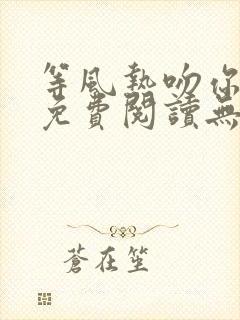 等風熱吻你
免費閱讀無
蒼在笙